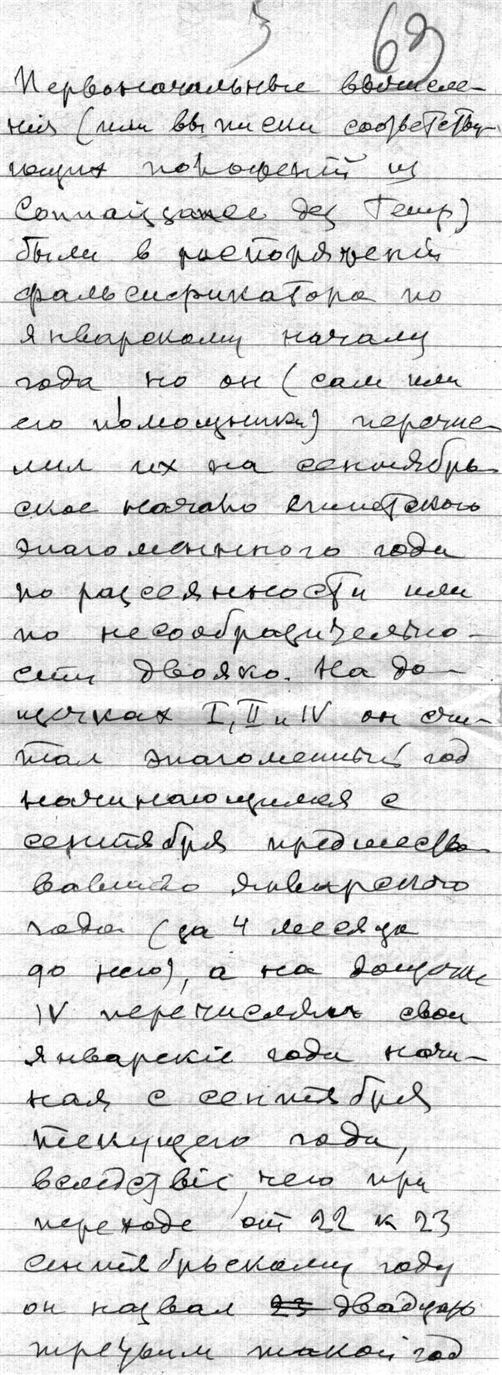 5 69
Первоначальные вычисле-
нія (или выписки соответству-
ющих положеній из
Connaissance des Temps)
были в распоряженіи
фальсификатора по
январскому началу
года но он (сам или
его помощники) перечис-
лил их на сентябрь-
ское начало египетского
эпагоменного года
по рассеянности или
по несообразительно-
сти двояко. На до-
щечках I, II и IV он счи-
тал эпагоменный год
начинающимся с
сентября предшество-
вавшего январского
года (за 4 месяца
до него), а на дощечке
IV перечислял свои
январскіе годы начи-
ная с сентября
текущего года,
вследствіе чего при
переходе от 22 к 23
сентябрьскому году
он назвал 23 двадцать
третьим такой год